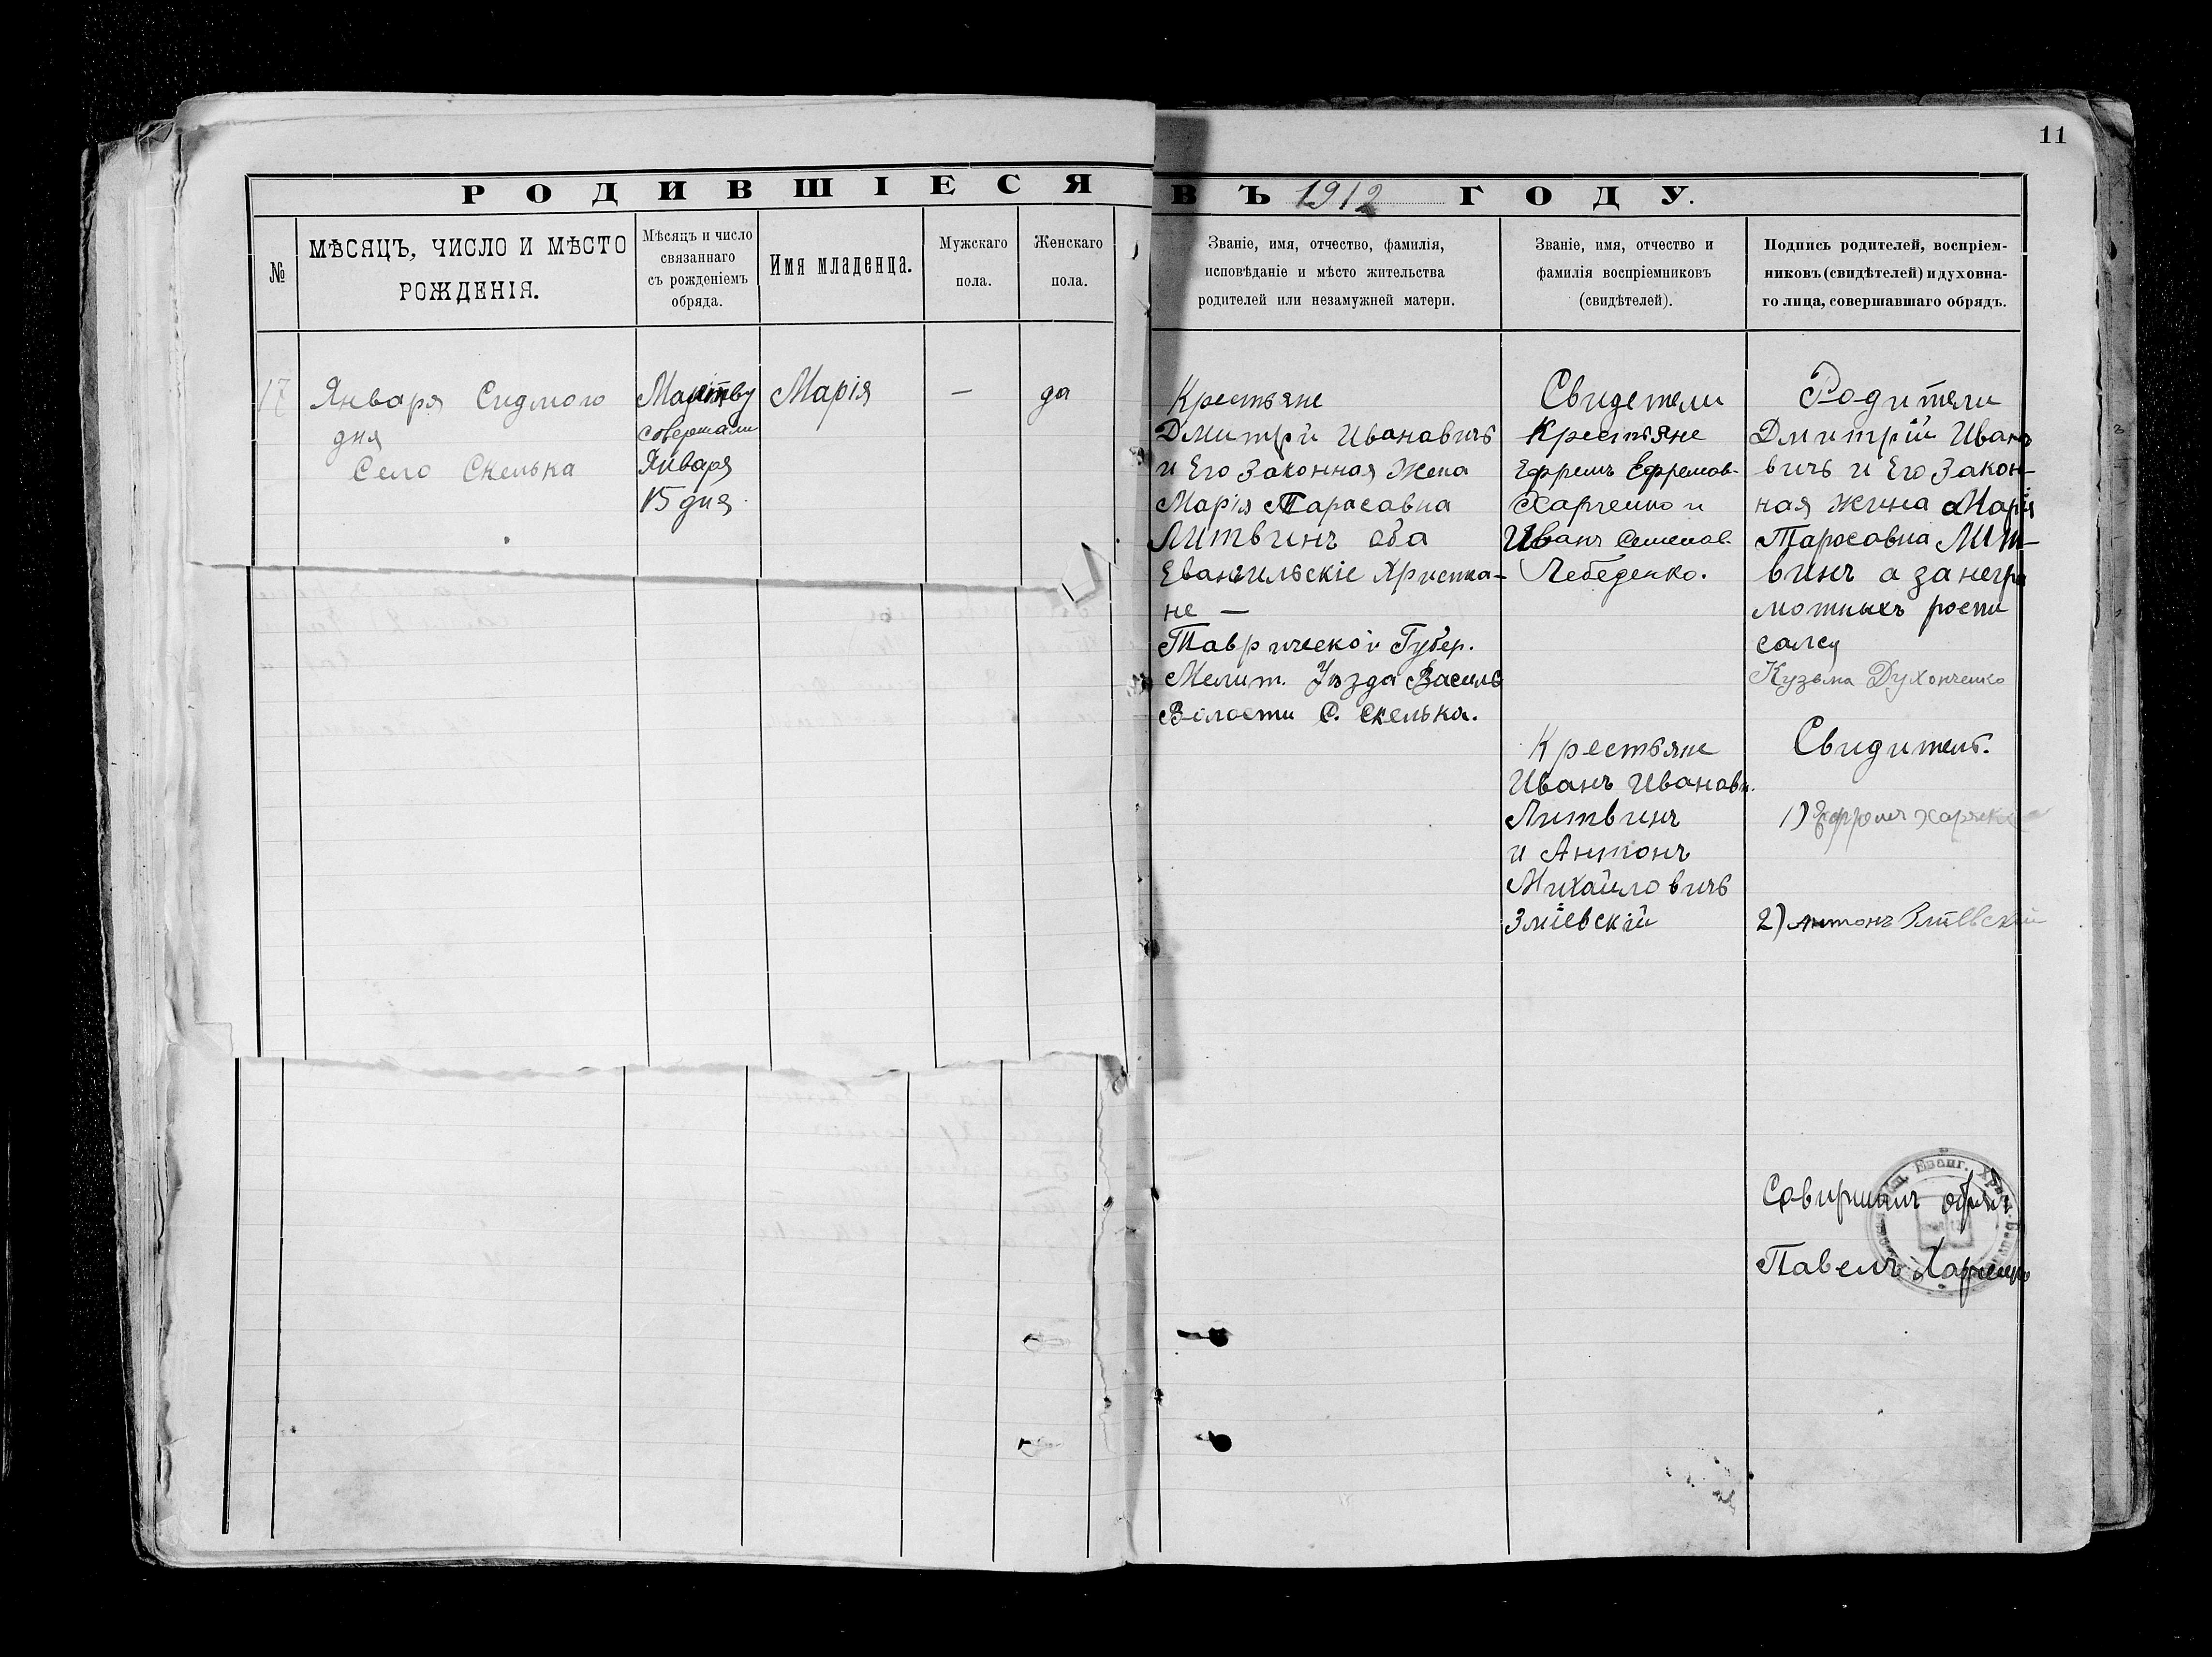 11
РОДИВШІЕСЯ ВЪ 1912 ГОДУ.
№
МѢСЯЦЪ, ЧИСЛО И МѢСТО
РОЖДЕНІЯ.
Мѣсяцъ и число
связаннаго
съ рожденіемъ
обряда.
Имя младенца.
Мужскаго
пола.
Женскаго
пола.
Званіе, имя, отчество, фамилія,
исповѣданіе и мѣсто жительства
родителей или незамужней матери.
Званіе, имя, отчество и
фамилія воспріемниковъ
(свидѣтелей).
Подпись родителей, воспріем-
никовъ (свидѣтелей) и духовна-
го лица, совершавшаго обрядъ.
17
Января Сидмого
дня
Село Скелька
совершали
Января
15 дня.
Марія
—
да
Крестьяне
Дмитрй Ивановичъ
и Его Законная Жена
Марія Тарасавна
Литвинъ оба
Евангильскіе Христиа-
не —
Таврической Губер.
Мелит. Уѣзда Василь
Волости С. Скелька.
Свидетели
Крестьяне
Ефремъ Ефремов-
Харченко и
Иванъ Семенов.
Лебеденко.
Крестьяне
Иванъ Иванович.
Литвинъ
и Антонъ
Михайловичъ
Зміевскій
Родители
Дмитрій Ивано
вичъ и Его Закон-
ная жина Марія
Тарасовна Лит-
винъ а за негра
мотныхъ роспи
салсу
Кузьма Духонченко
Свидитель.
1) Ефремъ Харченко
2) Антонъ Зміевскій
Совиршалъ обрядъ
Павелъ Харченко
Еванг. Хрис.